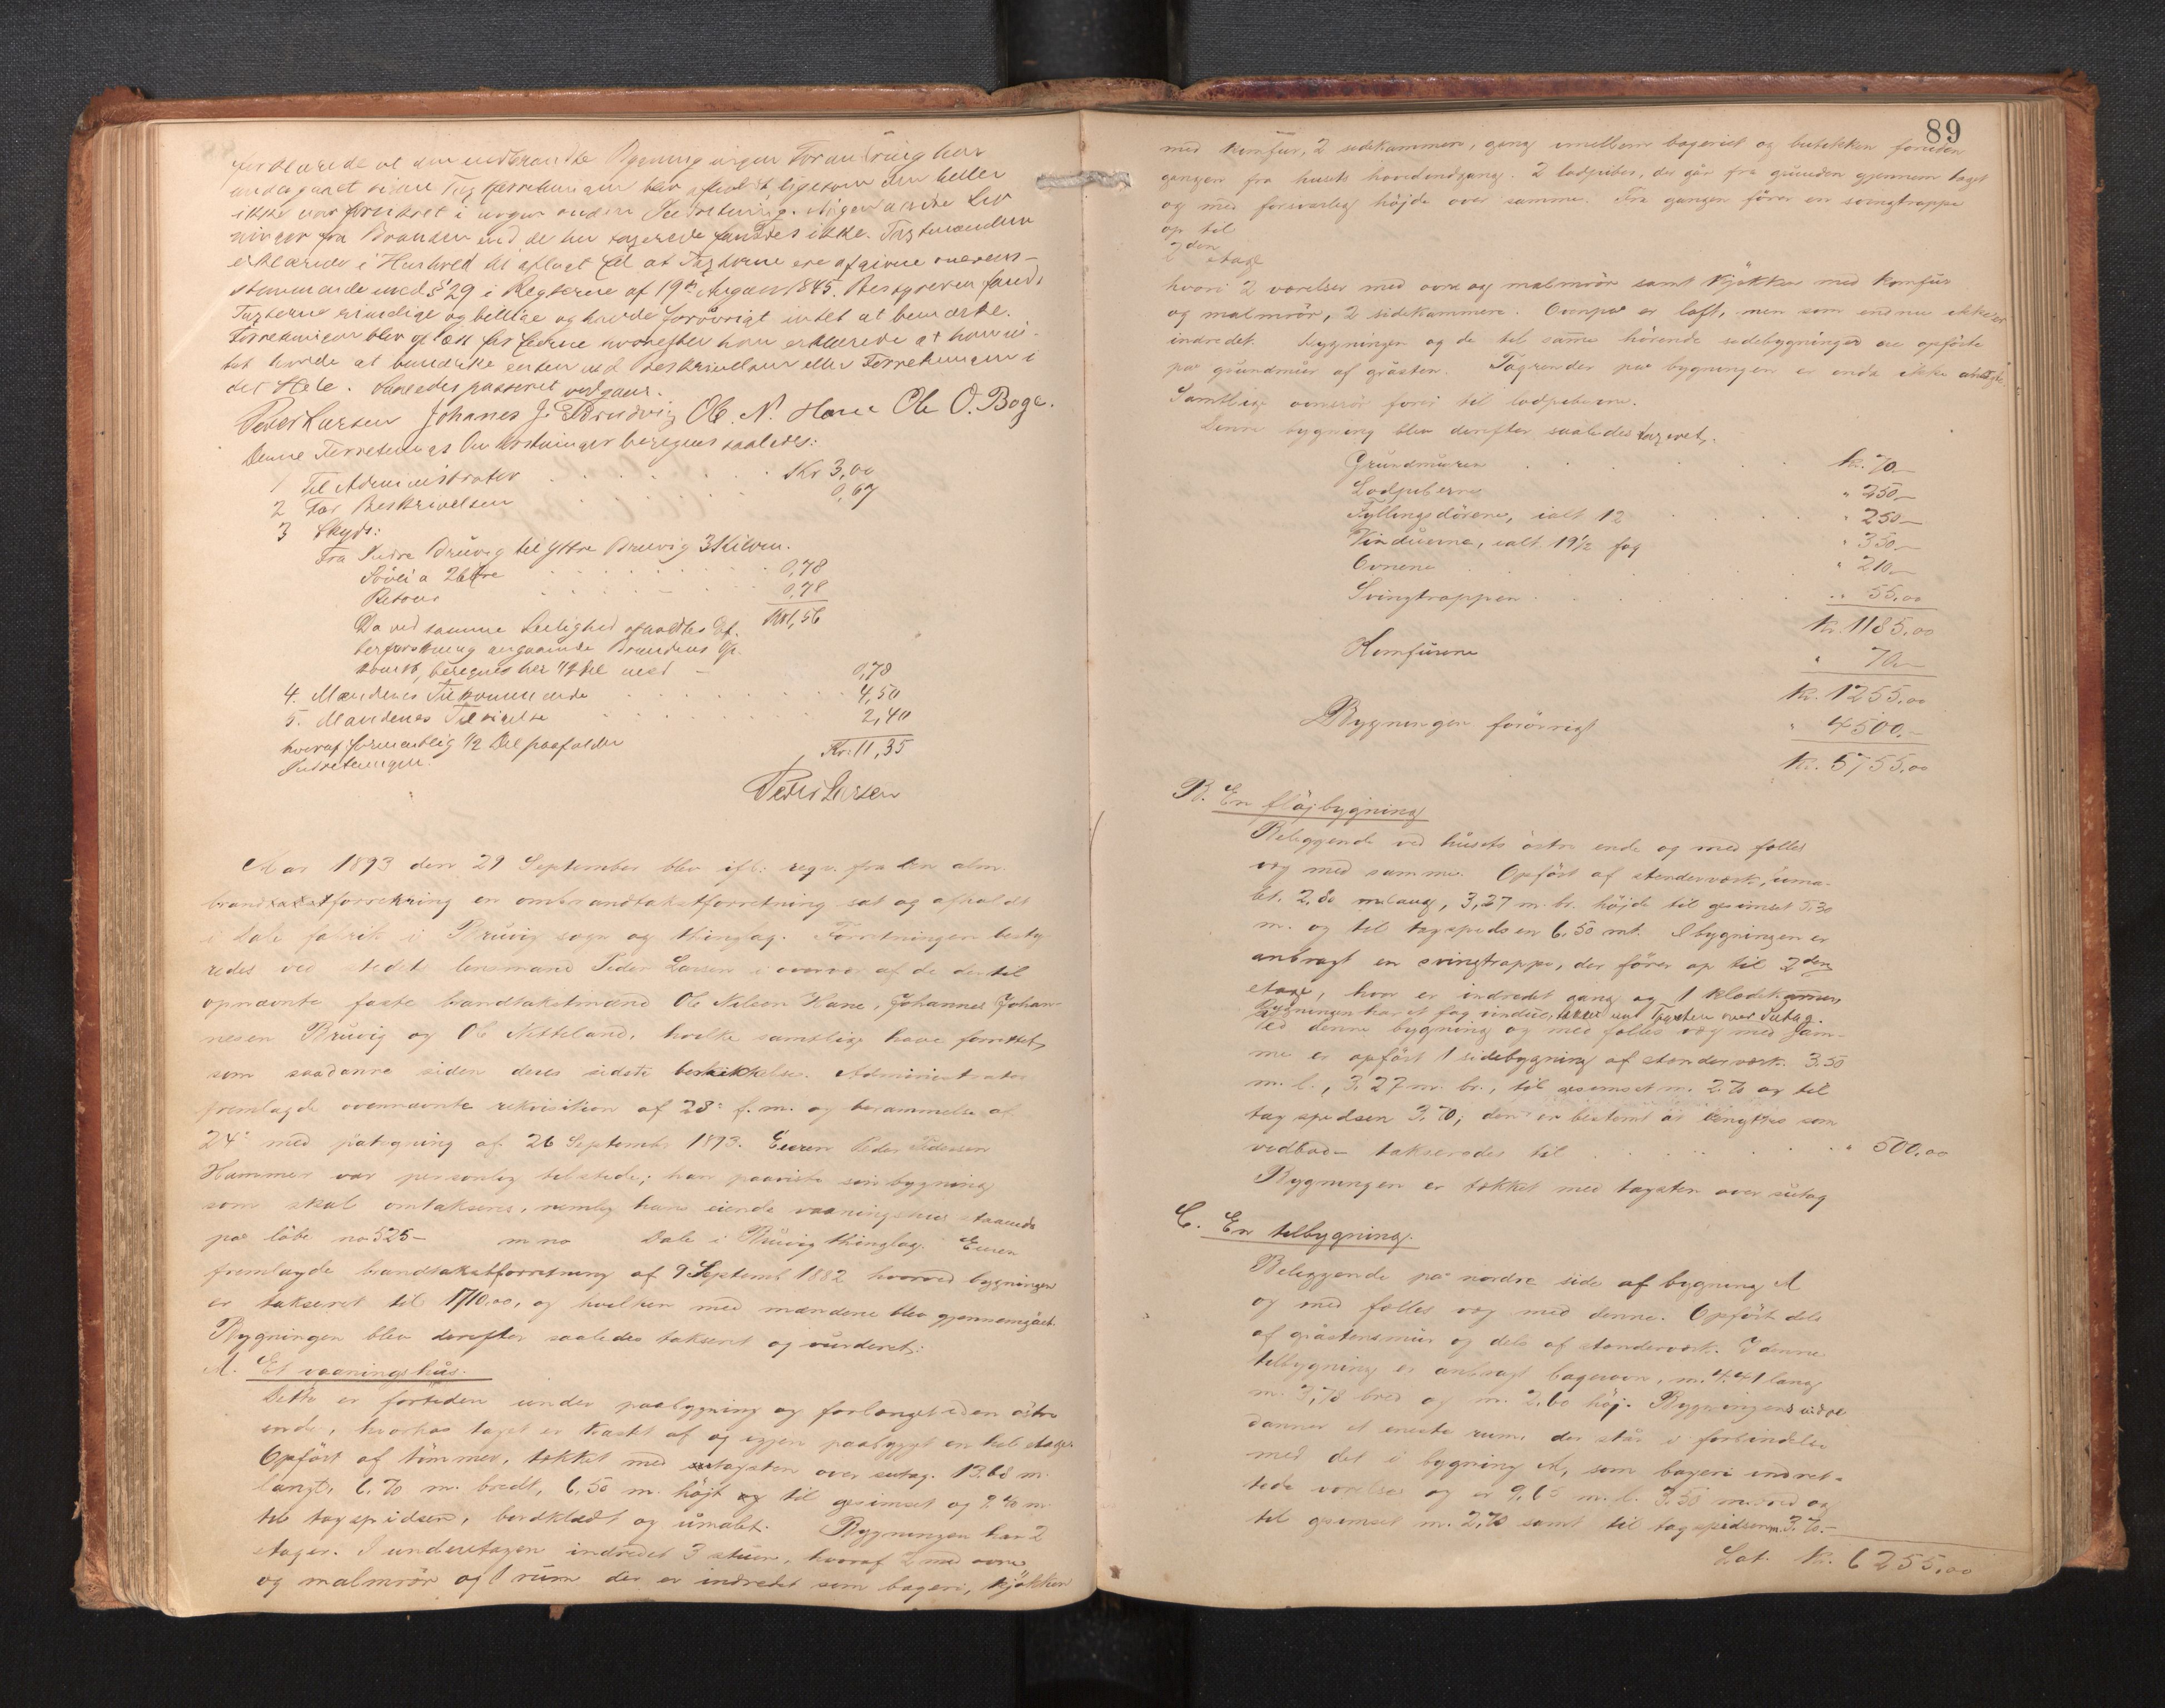 forklarede at den nedbrændte Bygning ingen Forandring har
undergaaet siden Taxtforretningen blev afholdt ligesom den heller
ikke var forsikret i nogen anden Indretning. Nogen andre Lev
ninger fra Branden end de her taxerede fandtes ikke. Taxtmændene
erklærede i Henhold til aflagt Ed at Taxterne ere afgivne overens-
stemmende med § 29 i Reglerne af 19de August 1845. Bestyreren fandt
Taxterne grundige og billige og havde forøvrigt intet at bemærke.
Forretningen blev oplæst for Eierne hvorefter han erklærede at han in-
tet havde at bemærke enten ved Beskrivelsen eller Forretningen i
det Hele. Saaledes passeret vedgaaes.
Peder Larsen Johanes J. Bruvig Ole N. Hane Ole O. Boge.
Denne Forretnings Omkostninger beregnes saaledes:
1 Til Administrator Kr 3,00
2 For Beskrivelsen 0,67
3 Skyds:
Fra Indre Bruvig til Yttre Bruvig 3 Kilom.
Søvei a 26 Øre 0,78
Retour 0,78
Kr 1,56
Da ved samme Leilighed afholdtes Ef-
terforskning angaaende Brandens Op-
komst, beregnes her 1/2 Del med – 0,78
4. Mændenes Tilkommende 4,50
5. Mændenes Tilsigelse 2,40
hvoraf formentlig 1/2 Del paafalder Kr. 11,35
Indretningen.
Peder Larsen
Aar 1893 den 29 September blev ifl: reqv. fra den alm.
brandforsikring en ombrandtakstforretning sat og afholdt
i Dale fabrik i Bruvig sogn og thinglag. Forretningen besty
redes ved stedets lensmand Peder Larsen i overvær af de dertil
opnævnte faste brandtakstmænd Ole Nilsen Hane, Johannes Johan-
nesen Bruvig og Ole Netteland, hvilke samtlige have forrettet
som saadanne siden deres sidste beskikkelse. Administrator
fremlagde ovennævnte rekvisition af 28: f.m. og berammelse af
24: med påtegning af 26 September 1893. Eieren Peder Pedersen
Hammer var personlig tilstede; han paaviste sin bygning
som skal omtakseres, nemlig hans eiende vaaningshus staaende
på löbe no 525 – m no Dale i Bruvig thinglag. Eieren
fremlagde brandtakstforretning af 9 Septemb 1882 hvorved bygningen
er takseret til 1710,00, og hvilken med mændene blev gjennemgået
Bygningen blev derefter saaledes takseret og vurderet:
A. Et vaaningshus.
Dette er fortiden under paabygning og forlænget i den östre
ende, hvorhos taget er kastet af og igjen paabygget en hel etage
Opført af tömmer, tækket med tagsten over sutag. 13,68 m.
langt, 6,70 m. bredt, 6,50 m. höjt til gesimset og 9,40 m.
til tagspidsen, bordklædt og umalet. Bygningen har 2
etager. I underetagen indredet 3 stuer, hvoraf 2 med ovne
og malmrör og 1 rum der er indredet som bageri, kjökken
89
med komfur, 2 sidekammere, gang imellem bageriet og butikken foruden
gangen fra husets hovedindgang. 2 lodpiber, der går fra grunden gjennem taget
og med forsvarlig höjde over samme. Fra gangen förer en svingtrappe
op til
2den etage
hvori 2 værelser med ovne og malmrör samt kjökken med komfur
og malmrör, 2 sidekammere. Ovenpaa er loft, men som endnu ikke er
indredet. Bygningen og de til samme hörende sidebygninger ere opförte
paa grundmur af gråsten. Tagrender paa bygningen er enda ikke anbragt.
Samtlige ovnsrör förer til lodpiberne.
Denne bygning blev derefter saaledes taxeret:
Grundmuren kr. 70 –
Lodpiberne " 250 –
Fyllingsdörene, ialt 12 " 250 –
Vinduerne, ialt 19½ fag " 350 –
Ovnene " 210 –
Svingtrappen " 55,00
kr. 1185,00
Komfurerne " 70 –
kr. 1255,00
Bygningen forövrigt " 4500. –
kr. 5755,00
B. En flöjbygning
Beliggende ved husets östre ende og med fælles
væg med samme. Opfört af stenderværk, uma-
let. 2,80 m lang, 3,27 m. br. höjde til gesimset 5,30
m. og til tagspidsen 6,50 mt. I bygningen er
anbragt en svingtrappe, der förer op til 2den
etage, hvor er indredet gang og 1 klædekammer,
Bygningen har et fag vindue, tækket med Tagsten over Sutag.
Ved denne bygning og med fælles væg med sam-
me er opfört 1 sidebygning af stenderværk. 3,50
m. l., 3,27 m. br., til gesimset m. 2,70 og til
tagspidsen 3,70; den er bestemt at benyttes som
vedbod – takseredes til " 500,00
Bygningen er tækket med tagsten over sutag
C. En tilbygning.
Beliggende på nordre side af bygning A
og med fælles væg med denne. Opfört dels
af gråstensmur og dels af stenderværk. I denne
tilbygning er anbragt bagerovn, m. 4,41 lang
m. 3,78 bred og m. 2,60 höj. Bygningens indre
danner et eneste rum, der står i forbindelse
med det i bygning A, som bageri indret-
tede værelse og er 9,65 m. l. 3,50 m. bred og
til gesimset m. 2,70 samt til tagspidsen m 3,70. –
Lat. kr. 6255,00